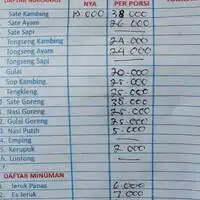 DAFTAR MAKANAN NYA PER PORSI
Sate Kambing 38 000
Sate Ayam 26 000
Sate Sapi
Tongseng Kambing 24.000
Tongseng Ayam 24 000
Tongseng Sapi
Gulai 20.000
Sop Kambing 25.000
Tengkleng 25.000
Sate Goreng 38.000
Nasi Goreng 25.000
Gulai Goreng 25.000
Nasi Putih 5.000
4. Emping
5. Kerupuk 2 000
6. Lontong
DAFTAR MINUMAN
1. Jeruk Panas 6.000
2. Es Jeruk 7.000